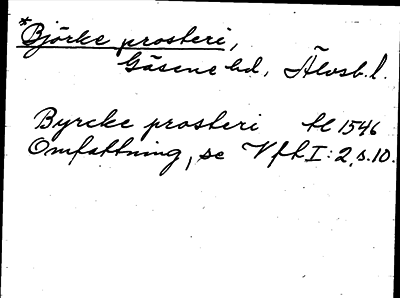 *Björke prosteri,
Gäsene hd, Älvsb. l.
Byrcke prosteri tl 1546
Omfattning, se VfL I:2, s. 10.